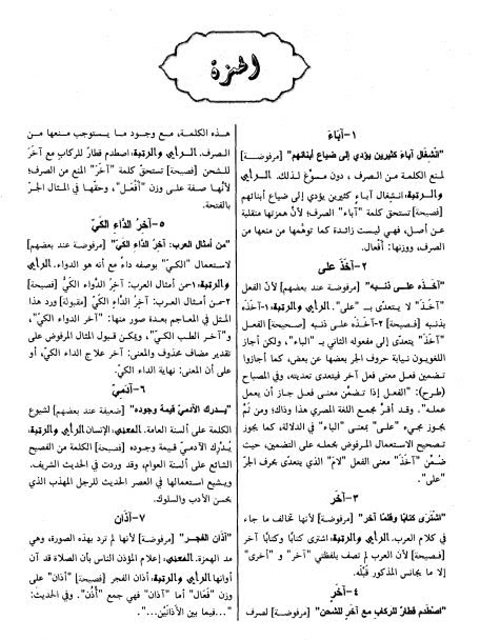 الهمزة
١-آباءَ
"انْشِغَال آباءَ كثيرين يؤدي إلى ضياع أبنائهم" [مرفوضة]
لمنع الكلمة من الصرف، دون مسوغ لذلك. الرأي
والرتبة، انشِغال آباءٍ كثيرين يؤدي إلى ضياع أبنائهم
[فصيحة] تستحق كلمة "آباء" الصرف؛ لأنَّ همزتها منقلبة
عن أصل، فهي ليست زائدة كما توهَّمها من منعها من
الصرف، ووزنها: أفْعال.
٢-آخَذَ على
"آخَذَه على ذنبه" [مرفوضة عند بعضهم] لأنَّ الفعل
"آخَذَ" لا يتعدَّى بـ "على". الرأي والرتبة، ١-آخَذه
بذنبه [فصيحة] ٢-آخَذَه على ذنبه [صحيحة] الفعل
"آخَذَ" يتعدَّى إلى مفعوله الثاني بـ "الباء"، ولكن أجاز
اللغويون نيابة حروف الجر بعضها عن بعض، كما أجازوا
تضمين فعل معنى فعل آخر فيتعدى تعديته، وفي المصباح
(طرح): "الفعل إذا تضمَّن معنى فعل جاز أن يعمل
عمله". وقد أقرَّ مجمع اللغة المصري هذا وذاك؛ ومن ثَمَّ
يجوز مجيء "على" بمعنى "الباء" في الدلالة، كما يجوز
تصحيح الاستعمال المرفوض بحمله على التضمين، حيث
ضُمِّن "آخَذَ" معنى الفعل "لامَ" الذي يتعدَّى بحرف الجرّ
"على".
٣-آخَر
"اشْتَرَى كتابًا وقلمًا آخر" [مرفوضة] لأنها تخالف ما جاء
في كلام العرب. الرأي والرتبة، اشترى كتابًا وكتابًا آخر
[فصيحة] لأنَّ العرب لم تصف بلفظتي "آخر" و "أخرى"
إلا ما يجانس المذكور قبْله.
٤-آخَرٍ
"اصْطَدم قطارٌ للركاب مع آخَرٍ للشحن" [مرفوضة] لصرف
هذه الكلمة، مع وجود ما يستوجب منعها من
الصرف. الرأي والرتبة، اصطدم قطارٌ للركاب مع آخَرَ
للشحن [فصيحة] تستحق كلمة "آخَرَ" المنع من الصرف؛
لأنها صفة على وزن "أفْعَل"، وحقّها في المثال الجرّ
بالفتحة.
٥-آخِرُ الدَّاءِ الكَيّ
"من أمثال العرب: آخِرُ الدَّاءِ الكَيّ" [مرفوضة عند بعضهم]
لاستعمال "الكيّ" بوصفه داءً مع أنه هو الدواء. الرأي
والرتبة، ١-من أمثال العرب: آخِرُ الدَّواءِ الكَيُّ [فصيحة]
٢-من أمثال العرب: آخِرُ الدَّاءِ الكَيُّ [مقبولة] ورد هذا
المثل في المعاجم بعدة صور منها: "آخر الدواء الكيّ"،
و"آخر الطب الكيّ"، ويمكن قبول المثال المرفوض على
تقدير مضاف محذوف والمعنى: آخر علاج الداء الكيّ، أو
على أن المعنى: نهاية الداء الكيّ.
٦-آدَمِيّ
"يُدرك الآدميّ قيمة وجوده" [ضعيفة عند بعضهم] لشيوع
الكلمة على ألسنة العامة. المعنى، الإنسان الرأي والرتبة،
يُدْرك الآدميّ قيمة وجوده [فصيحة] الكلمة من الفصيح
الشائع على ألسنة العوام، وقد وردت في الحديث الشريف.
ويشيع استعمالها في العصر الحديث للرجل المهذب الذي
يحسن الأدب والسلوك.
٧-آذان
"آذان الفجر" [مرفوضة] لأنها لم ترد بهذه الصورة، وهي
مد الهمزة. المعنى، إعلام المؤذن الناس بأن الصلاة قد آن
أوانها الرأي والرتبة، أذان الفجر [فصيحة] "أذان" على
وزن "فَعَال" أما "آذان" فهي جمع "أُذُن". وفي الحديث:
"...فيما بين الأذانَيْن...".